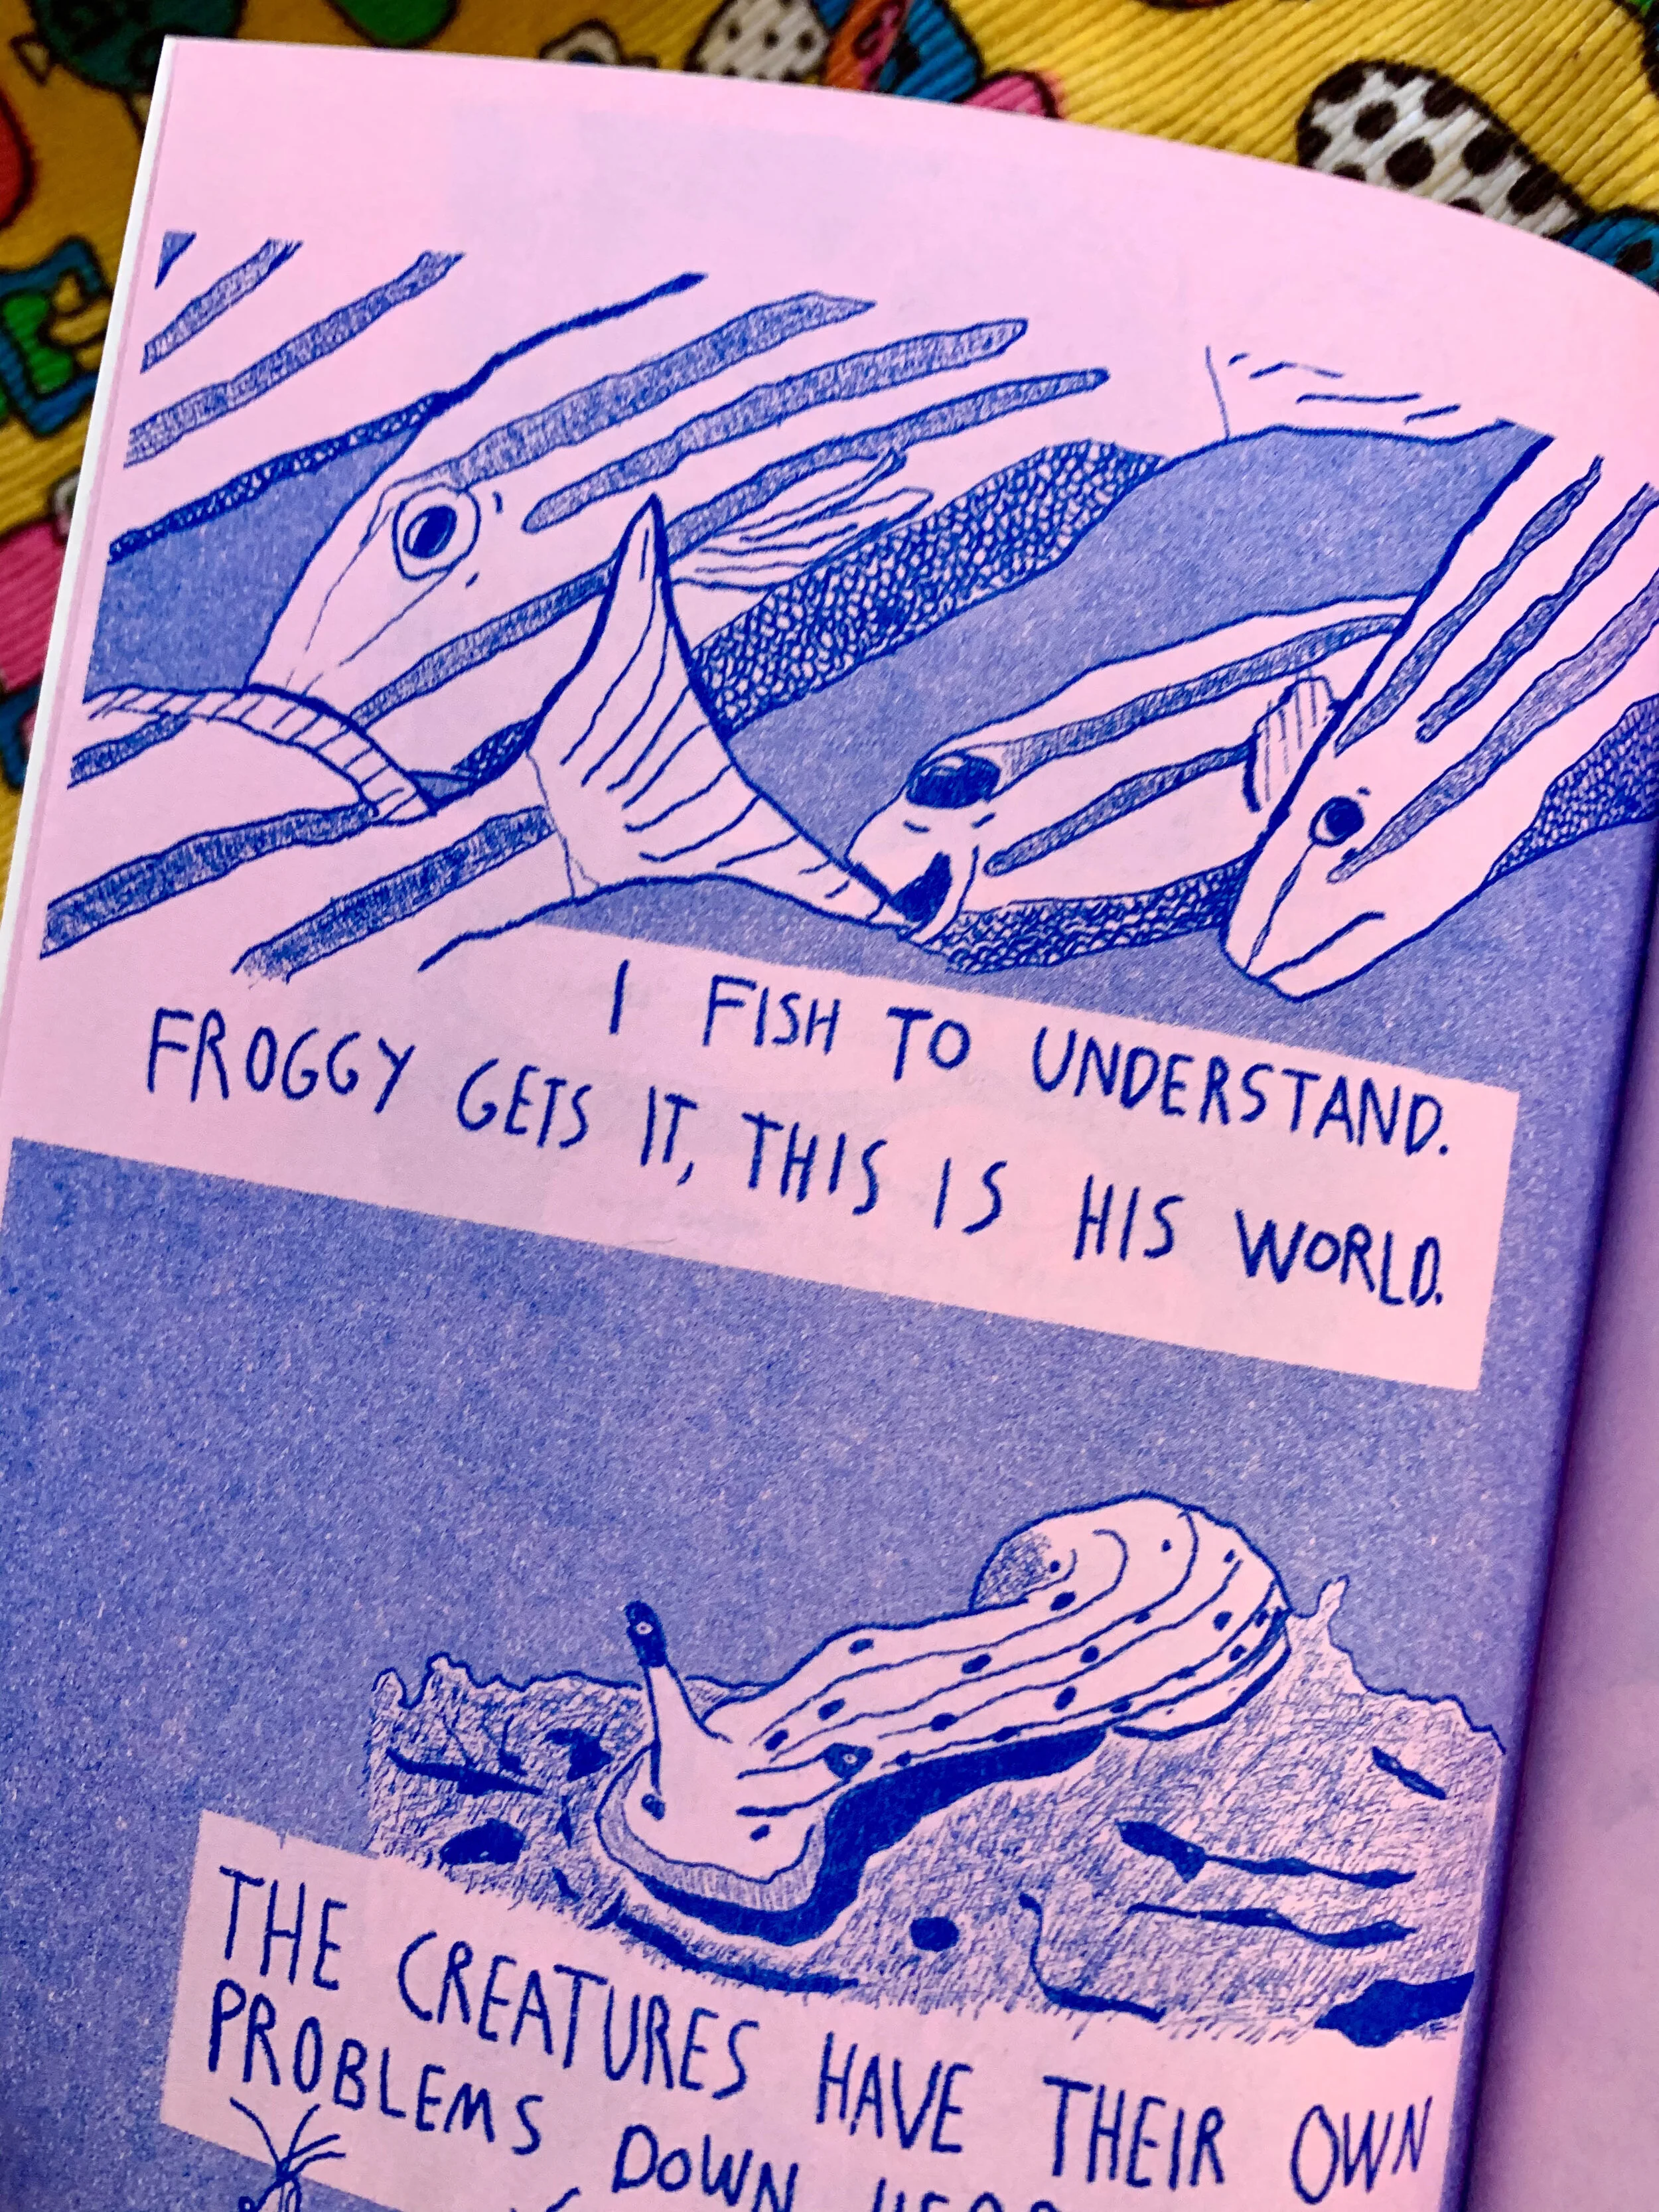 I FISH TO UNDERSTAND.
FROGGY GETS IT, THIS IS HIS WORLD.
THE CREATURES HAVE THEIR OWN
PROBLEMS DOWN